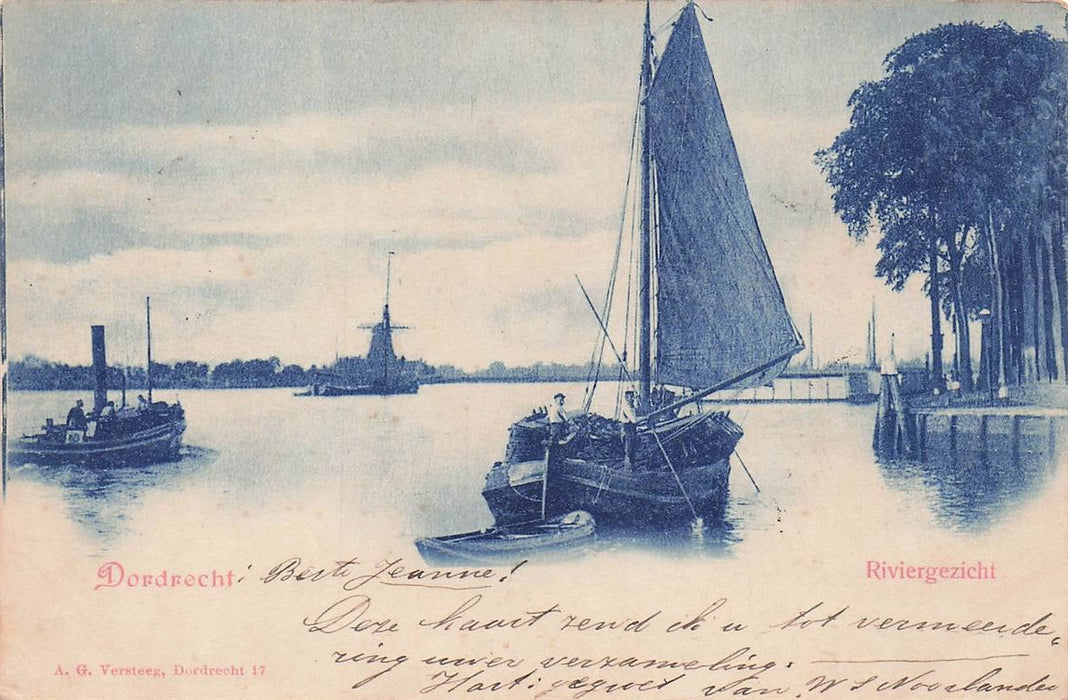 Dordrecht: Beste Jeanne!
Riviergezicht
Deze kaart zend ik u tot vermeerde„
ring uwer verzameling.
A. G. Versteeg, Dordrecht 17
Hart: gegroet van W S Noorlander